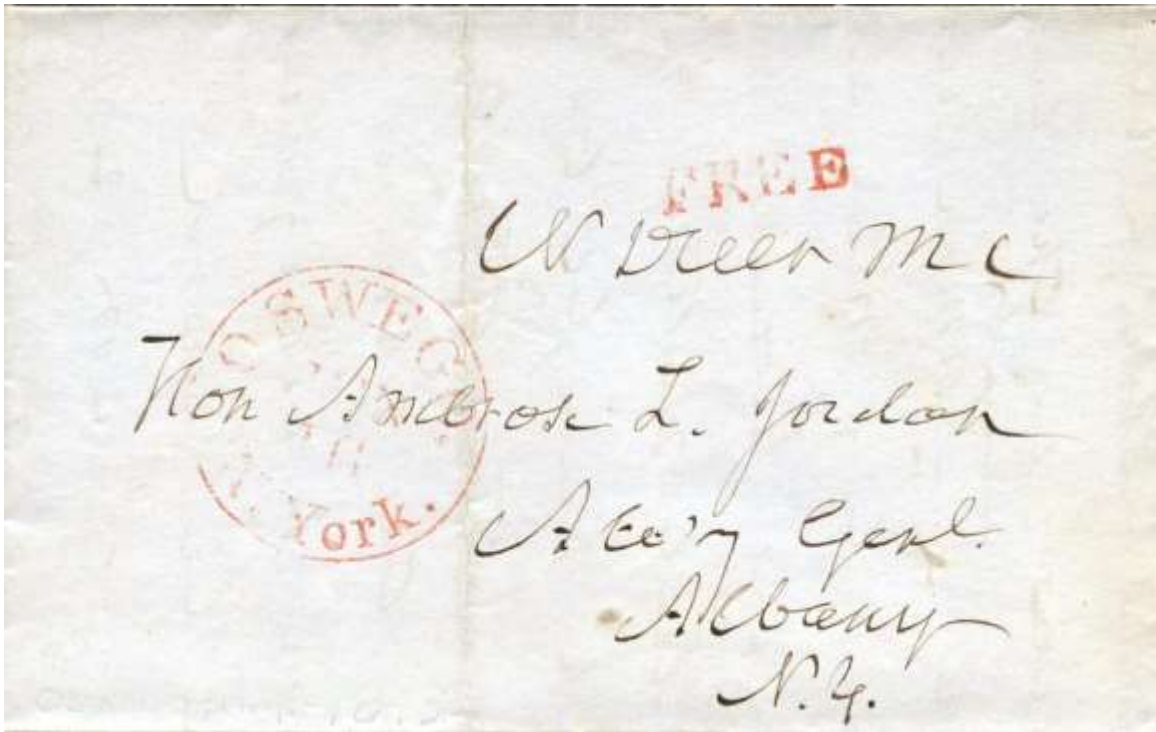 FREE
W Duer M C
OSWEGO
Hon Ambrose L. Jordan
N. York.
Atto'y Genl.
Albany
N.Y.